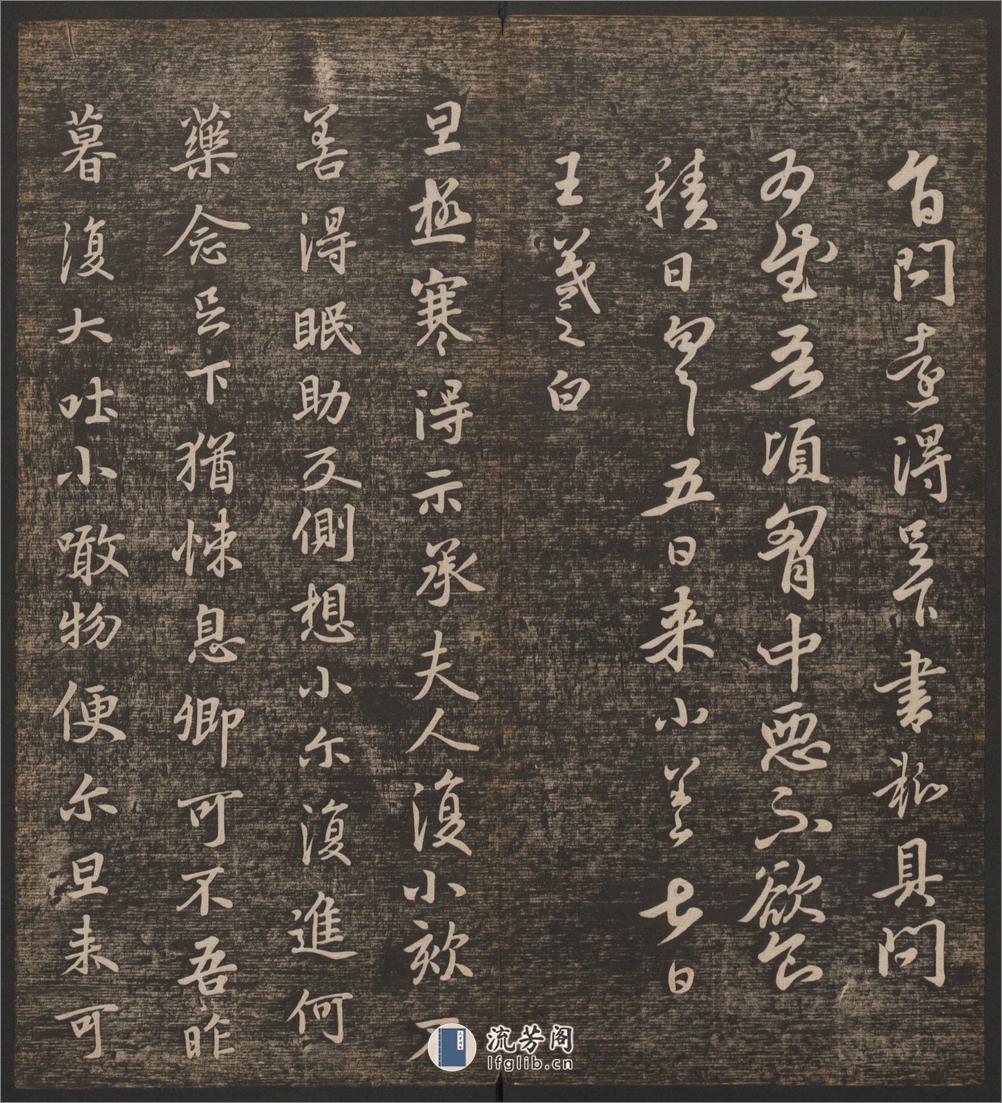 旨問得足下書粗具問
為慰吾頃胷中惡不欲食
積日勿勿五日来小差七日
王羲之白
旦極寒得示承夫人復小欬不
善得眠助反側想小尔復進何
藥念足下猶悚息卿可不吾昨
暮復大吐小噉物便尔旦来可
流芳阁
lfglib.cn